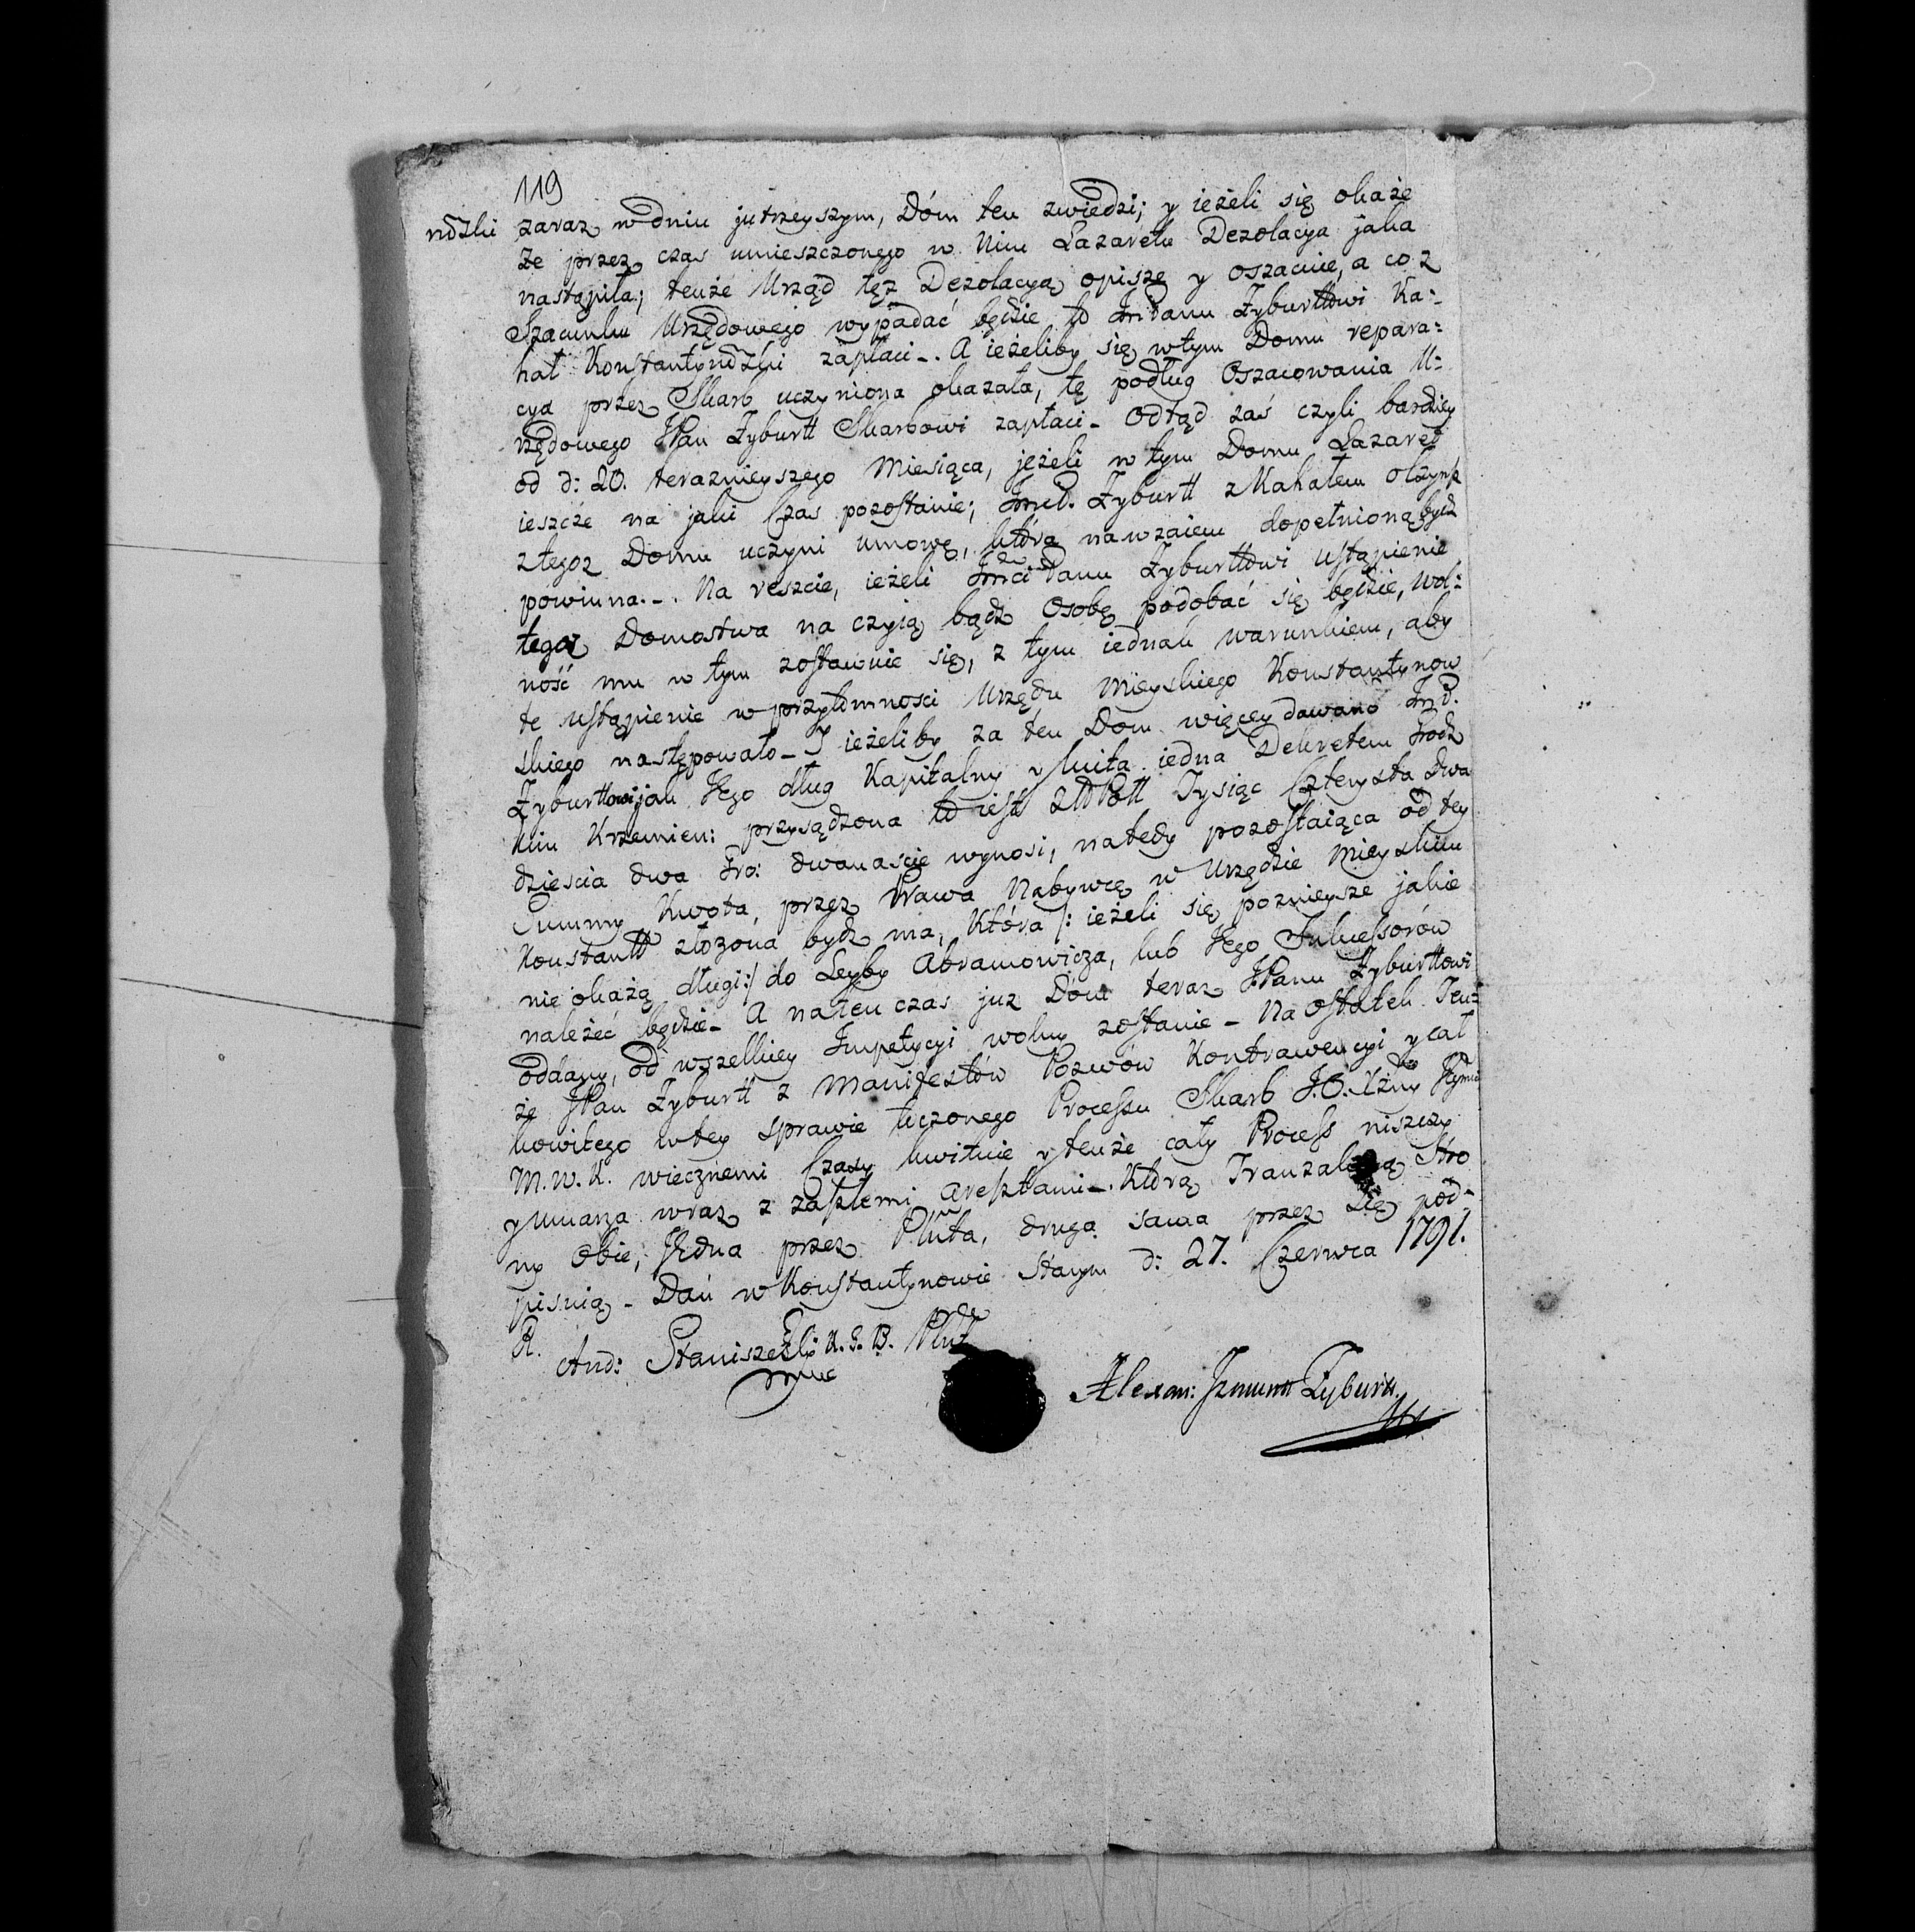 119
nďzki zaraz w dniu jutrzeyszym, Dóm ten zwiedzi; y ieżeli się okaże
że przez czas umieszczonego w Nim Lazaretu Dezolacya jaka
nastąpiła; tenże Urząd tęż Dezolacyą opisze y oszacuie, a co z
Szacunku Urzędowego wypadać będzie to Panu Zyburttowi Ka:
hał Konstantynďzki zapłaci -. A ieżeliby się w tym Domu repara:
cya przez Skarb uczyniona okazała, tę podług Oszacowania U:
rzędowego JPan Zyburtt Skarbowi zapłaci - Odtąd zaś czyli bardziey
od d: 20. teraznieyszego Miesiąca, jeżeli w tym Domu Lazaret
ieszcze na jaki Czas pozostanie; Zyburtt z Kahałem o Czynsz
z tegoz Domu uczyni umowę, która nawzaiem dopełnioną bydź
powinna. -. Na reszcie, ieżeli Jmci Panu Zyburttowi ustąpienie
tegoz Domostwa na czyią bądź Osobę podobać się będzie, wol:
ność mu w tym zostawuie się, z tym iednak warunkiem, aby
te ustąpienie w przytomności Urzędu Mieyskiego Konstantynow
skiego następowało - I ieżeliby za ten Dom więcey dawano
Zyburttowi jak Jego dług Kapitalny y luita iedna Dekretem Grodz
kim Krzemien: przysądzona to iest ZłPoll Tysiąc Czterysta Dwa
dzieścia dwa Gro: dwanaście wynosi, natedy pozostaiąca od tey
Summy Kwota, przez Prawa Nabywcę w Urzędzie Mieyskim
Konstantt złożona bydź ma, Która /: ieżeli się poznieysze jakie
nie okażą długi :/ do Leyby Abramowicza, lub Jego Sukcessorów
należeć będzie - A natenczas juz Dóm teraz JPanu Zyburttowi
oddany, od wszelkiey Impetycyi wolny zostanie - Na ostatek Ten:
że JPan Zyburtt z Manifestów Pozwów Kontrawencyi y cał
kowitego w tey sprawie toczonego Processu Skarb J.O. Xżny Jeymci
M. W. K. wiecznemi Czasy kwituie y tenże cały Process niszczy
y umarza wraz z zaszłemi Aresztami -. Którą Tranzakcyą Stro
ny Obie, Jedna przez Pluta, druga sama przez się pod-
pisuią - Dań w Konstantynowie Starym d: 27. Czerwca 1791.
R. And: Staniszewski K. G. B. Pluт
mpe
Alexan: Izmunt Zyburtt